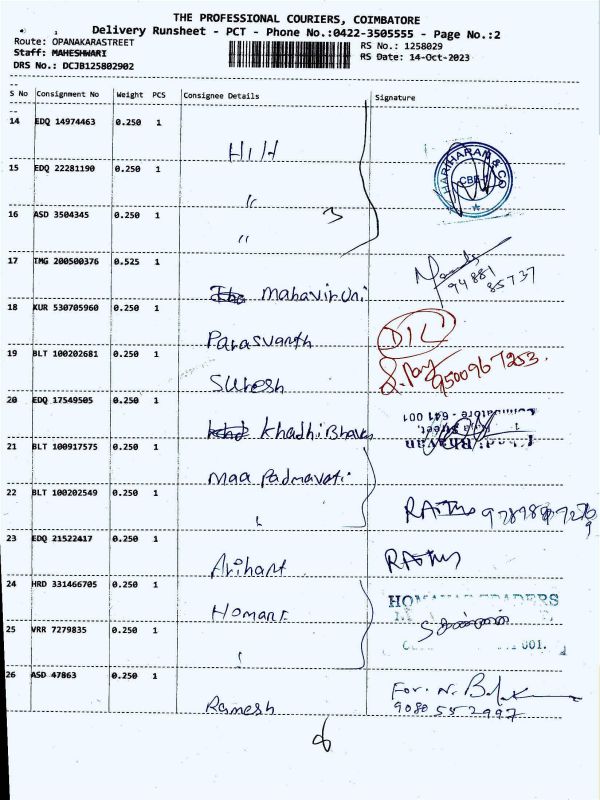 THE PROFESSIONAL COURIERS, COIMBATORE
Delivery Runsheet - PCT - Phone No.:0422-3505555 - Page No.:2
Route: OPANAKARASTREET
RS No.: 1258029
Staff: MAHESHWARI
RS Date: 14-Oct-2023
DRS No.: DCJB125802902
S No Consignment No Weight PCS Consignee Details Signature
14 EDQ 14974463 0.250 1
HIH
15 EDQ 22281190 0.250 1
"
HARIHARAN & CO
CBE-1
16 ASD 3504345 0.250 1
" 3
17 TMG 200500376 0.525 1
Mahavir Uni
94881
85737
18 KUR 530705960 0.250 1
Parasvanth
DIC
19 BLT 100202681 0.250 1
Suresh
9500967253.
20 EDQ 17549505 0.250 1
Khadhi Bhavan
Coimbatore - 641 001
Bhavan
21 BLT 100917575 0.250 1
Maa Padmavati
22 BLT 100202549 0.250 1
"
23 EDQ 21522417 0.250 1
Arihant
24 HRD 331466705 0.250 1
TRADERS
25 VRR 7279835 0.250 1
"
001.
26 ASD 47863 0.250 1
Ramesh
For. N.
9080552997